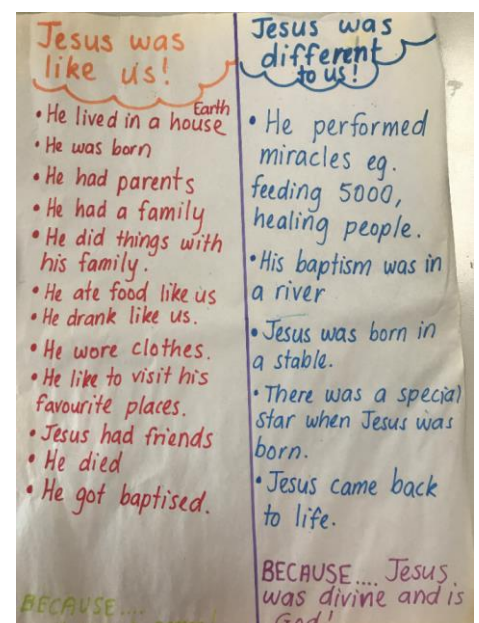 Jesus was
like us!
• He lived in a house Earth
• He was born
• He had parents
• He had a family
• He did things with
his family.
• He ate food like us
• He drank like us.
• He wore clothes.
• He like to visit his
favourite places.
• Jesus had friends
• He died
• He got baptised.
BECAUSE....
Jesus was
different
to us!
• He performed
miracles eg.
feeding 5000,
healing people.
• His baptism was in
a river
• Jesus was born in
a stable.
• There was a special
star when Jesus was
born.
• Jesus came back
to life.
BECAUSE.... Jesus
was divine and is
God!